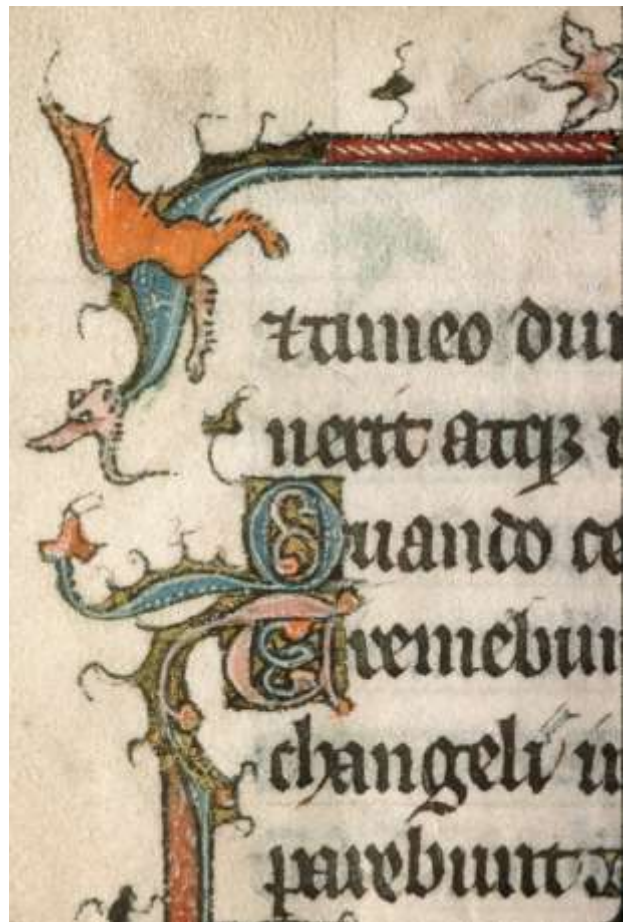 et timeo dum
uerit atq;
Quando ce
Tremebun
changeli
parebunt